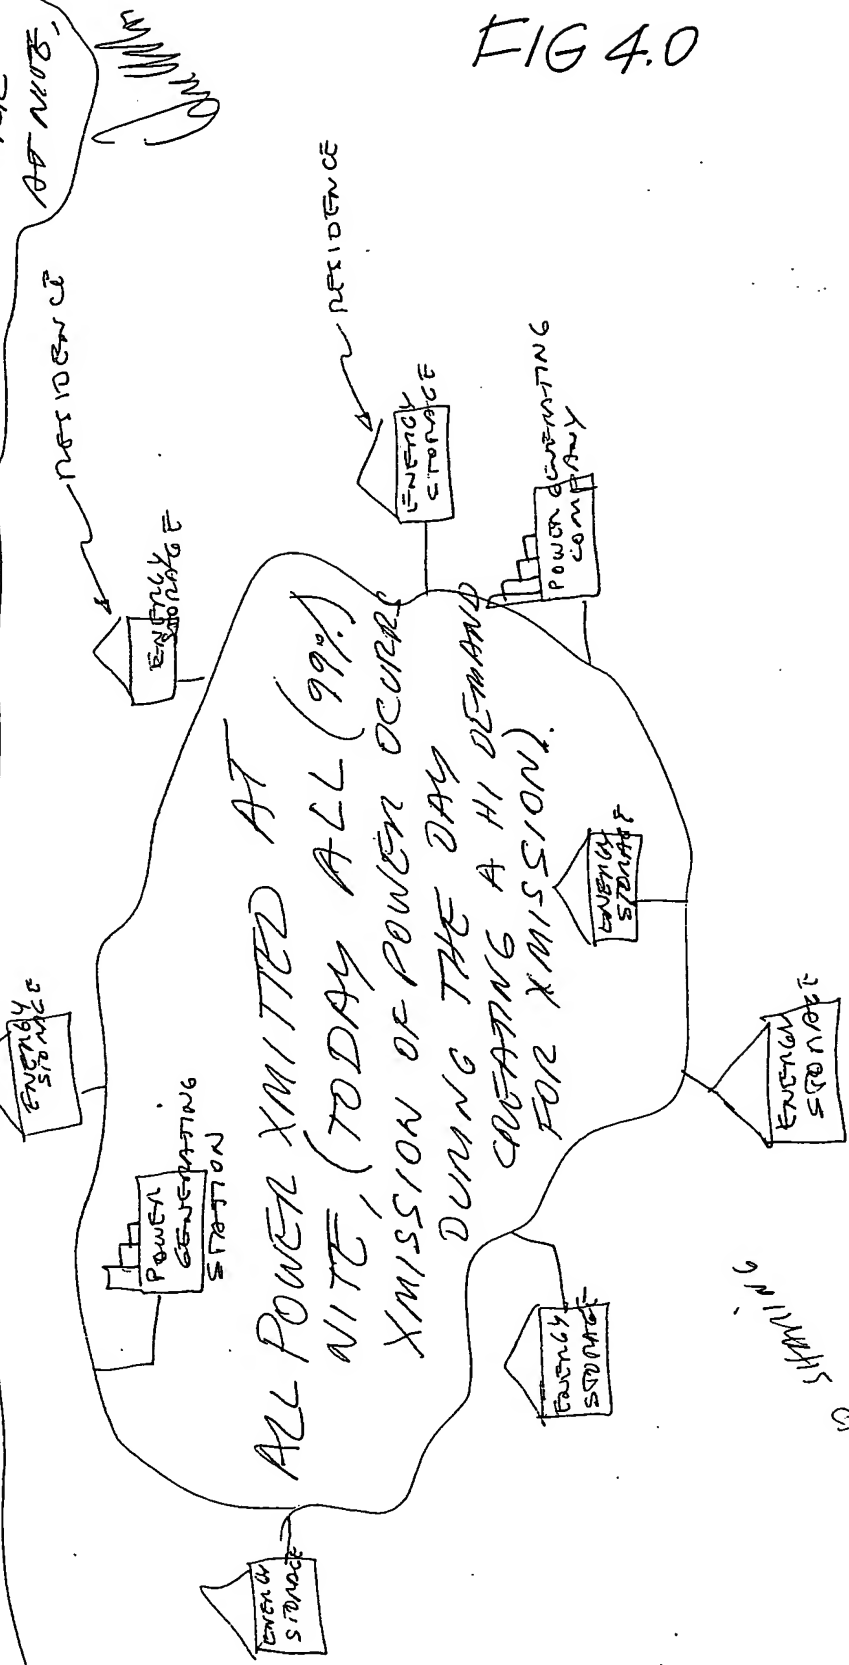 FIG 4.0
AT NITE,
RESIDENCE
RESIDENCE
ENERGY
STORAGE
ENERGY
STORAGE
ENERGY
STORAGE
POWER GENERATING
COMPANY
POWER
GENERATING
STATION
ALL POWER XMITTED AT
NITE, (TODAY ALL (99%)
XMISSION OF POWER OCURRS
DURING THE DAY
CREATING A HI DEMAND
FOR XMISSION).
ENERGY
STORAGE
ENERGY
STORAGE
ENERGY
STORAGE
ENERGY
STORAGE
SHARING